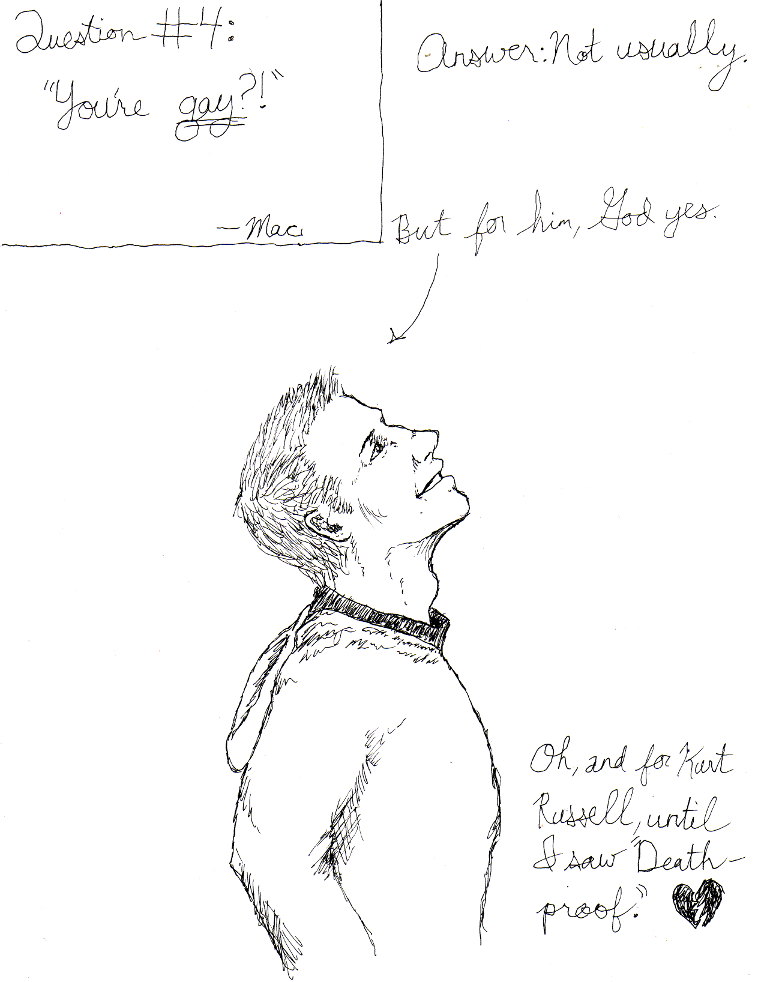 Question #4:
"You're gay?!"
—Mac
Answer: Not usually.
But for him, God yes.
Oh, and for Kurt
Russell, until
I saw "Death-
proof."